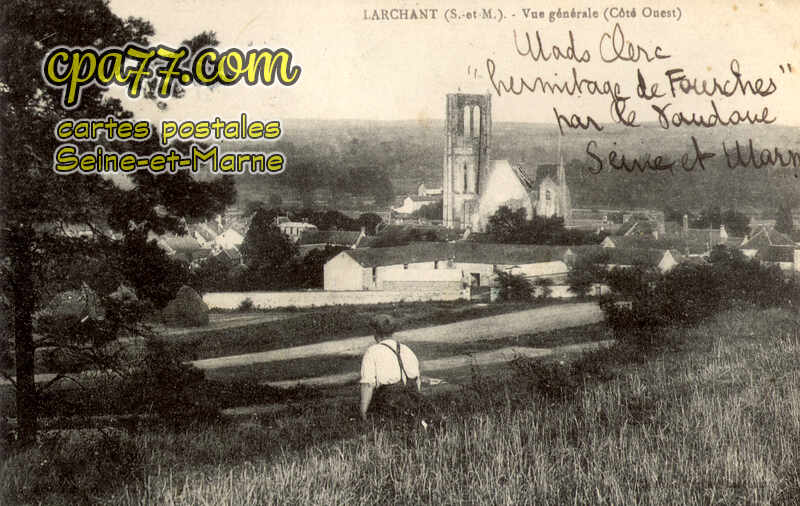 LARCHANT (S.-et-M.). - Vue générale (Côté Ouest)
cpa77.com
cartes postales
Seine-et-Marne
Mads Clerc
"hermitage de Fourches"
par le Vaudoué
Seine et Marn